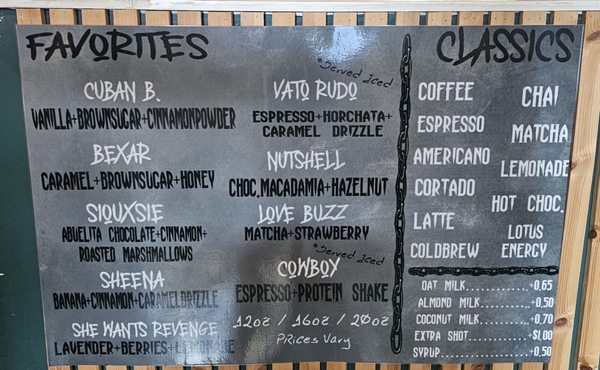 FAVORITES
CUBAN B.
VANILLA+BROWNSUGAR+CINNAMONPOWDER
BEXAR
CARAMEL+BROWNSUGAR+HONEY
SIOUXSIE
ABUELITA CHOCOLATE+CINNAMON+
ROASTED MARSHMALLOWS
SHEENA
BANANA+CINNAMON+CARAMELDRIZZLE
SHE WANTS REVENGE
LAVENDER+BERRIES+LEMONADE
*Served Iced
VATO RUDO
ESPRESSO+HORCHATA+
CARAMEL DRIZZLE
NUTSHELL
CHOC.MACADAMIA+HAZELNUT
LOVE BUZZ
MATCHA+STRAWBERRY
*Served Iced
COWBOY
ESPRESSO+PROTEIN SHAKE
12oz / 16oz / 20oz
PRices Vary
CLASSICS
COFFEE
ESPRESSO
AMERICANO
CORTADO
LATTE
COLDBREW
CHAI
MATCHA
LEMONADE
HOT CHOC.
LOTUS
ENERGY
OAT MILK............+0.65
ALMOND MILK...........+0.50
COCONUT MILK.........+0.70
EXTRA SHOT............+$1.00
SYRUP...................+0.50